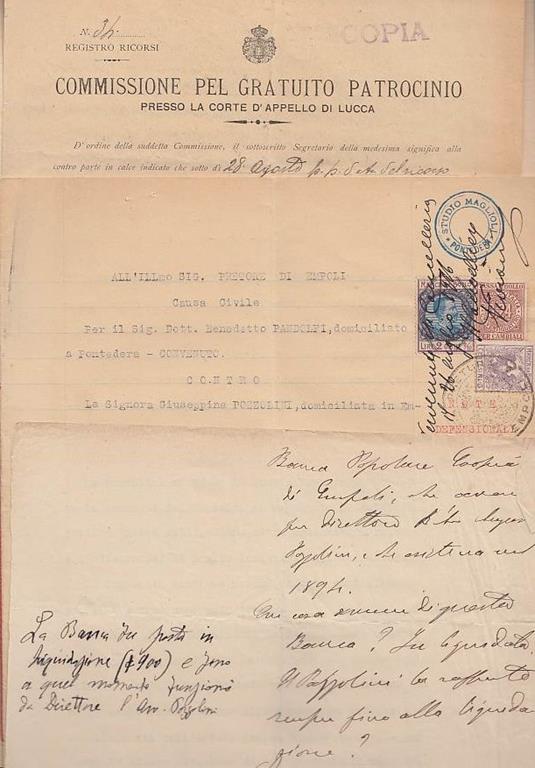 N. 34
REGISTRO RICORSI
COPIA
COMMISSIONE PEL GRATUITO PATROCINIO
PRESSO LA CORTE D'APPELLO DI LUCCA
D'ordine della suddetta Commissione, il sottoscritto Segretario della medesima significa alla
contro parte in calce indicata che sotto dì 28 Agosto p. p.
STUDIO MAGLIOLI
PONTEDERA
ALL'ILLmo SIG. PRETORE DI EMPOLI
Causa Civile
Per il Sig. Dott. Benedetto PANDOLFI, domiciliato
a Pontedera - CONVENUTO.
CONTRO
La Signora Giuseppina POZZOLINI, domiciliata in Em-
LIRE 2
PER CAMBIALI
DEFENSIONALE
Banca Popolare Coopva
di Empoli, che aveva
per direttore
Pozzolini, e che esisteva nel
1894.
Che cosa avvenne di questa
Banca? Fu liquidata?
Il Pozzolini la
sempre fino alla liquida
zione?
La Banca fu posta in
liquidazione (1900) e fino
a quel momento funzionò
da Direttore l'Avv. Pozzolini